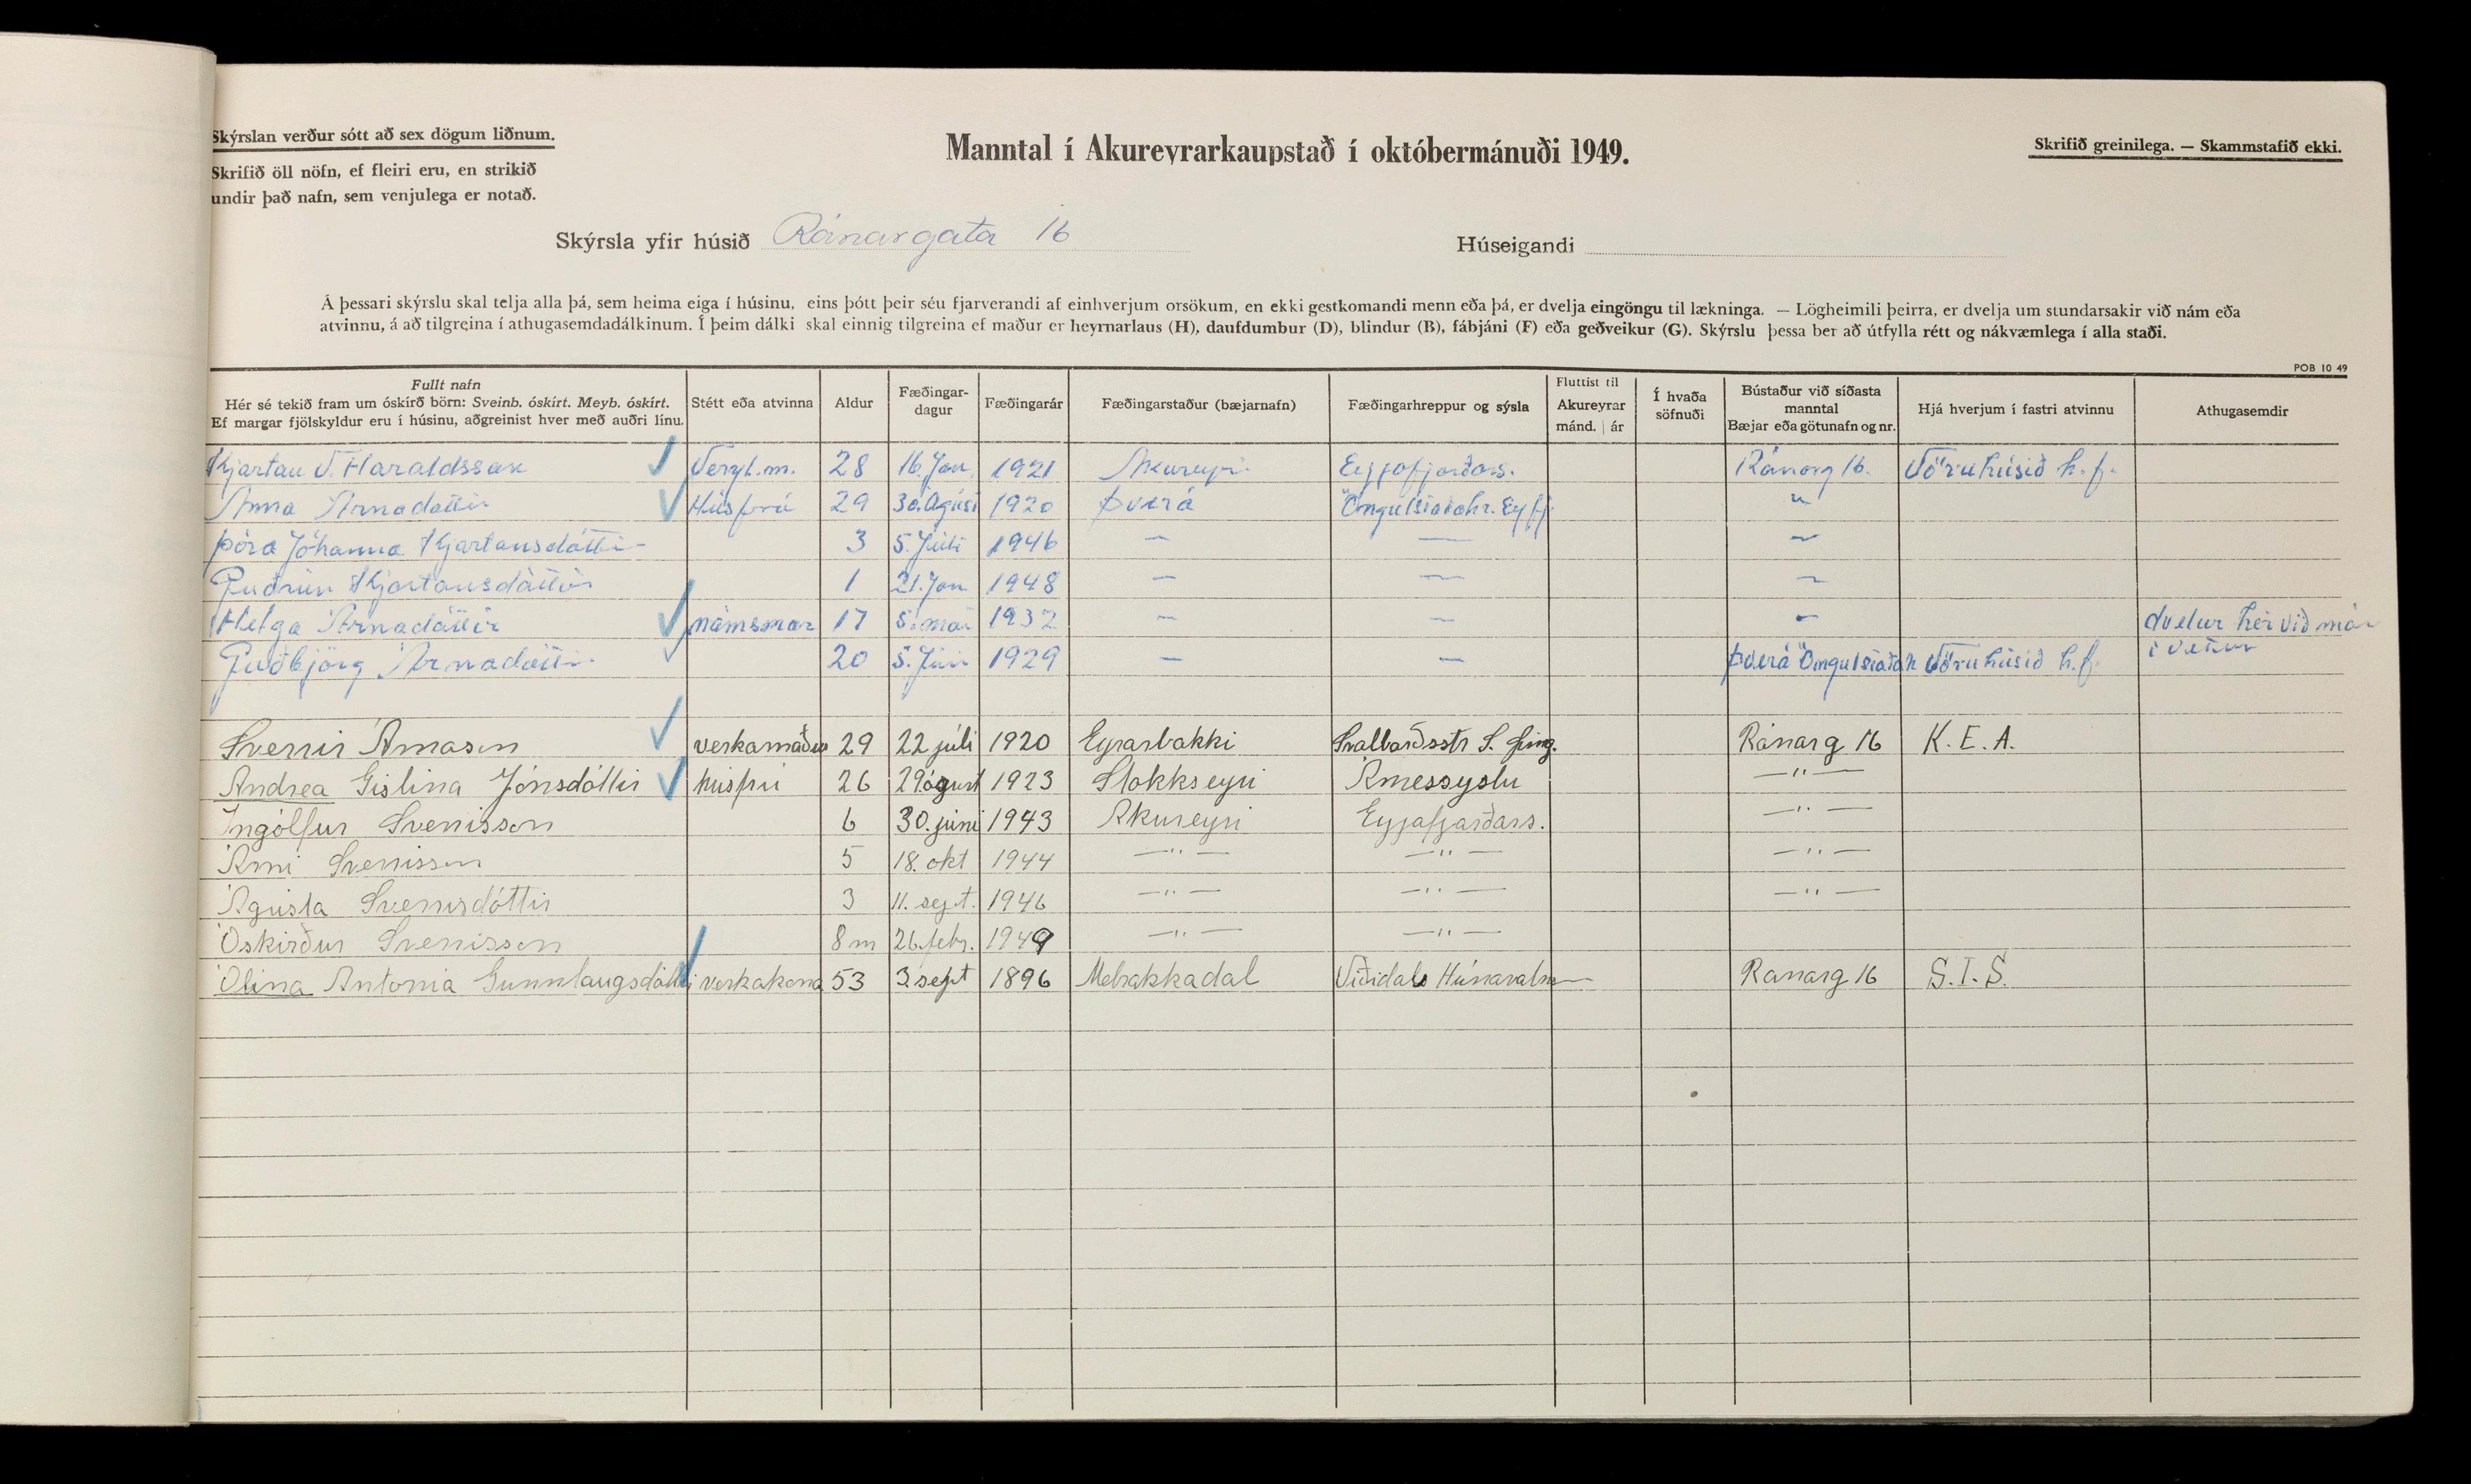 Skýrslan verður sótt að sex dögum liðnum.
Skrifið öll nöfn, ef fleiri eru, en strikið
undir það nafn, sem venjulega er notað.
Manntal í Akureyrarkaupstað í októbermánuði 1949.
Skrifið greinilega. — Skammstafið ekki.
Skýrsla yfir húsið Ránargata 16
Húseigandi
Á þessari skýrslu skal telja alla þá, sem heima eiga í húsinu, eins þótt þeir séu fjarverandi af einhverjum orsökum, en ekki gestkomandi menn eða þá, er dvelja eingöngu til lækninga. — Lögheimili þeirra, er dvelja um stundarsakir við nám eða
atvinnu, á að tilgreina í athugasemdadálkinum. Í þeim dálki skal einnig tilgreina ef maður er heyrnarlaus (H), daufdumbur (D), blindur (B), fábjáni (F) eða geðveikur (G). Skýrslu þessa ber að útfylla rétt og nákvæmlega í alla staði.
POB 10 49
Fullt nafn
Hér sé tekið fram um óskírð börn: Sveinb. óskírt. Meyb. óskírt.
Ef margar fjölskyldur eru í húsinu, aðgreinist hver með auðri línu.
Stétt eða atvinna
Aldur
Fæðingar-
dagur
Fæðingarár
Fæðingarstaður (bæjarnafn)
Fæðingarhreppur og sýsla
Fluttist til
Akureyrar
mánd. | ár
Í hvaða
söfnuði
Bústaður við síðasta
manntal
Bæjar eða götunafn og nr.
Hjá hverjum í fastri atvinnu
Athugasemdir
Kjartan Haraldsson ✓ Verzl.m. 28 16. Jan. 1921 Akureyri Eyjafjarðars. Ránarg 16. Vöruhúsið h.f.
Anna Árnadóttir ✓ Húsfrú 29 30. Ágúst 1920 Þverá Öngulstaðahr. Eyjf. "
Þóra Jóhanna Kjartansdóttir 3 5. Júlí 1946 — — ~
Guðrún Kjartansdóttir 1 21. Jan 1948 — — ~
Helga Árnadóttir ✓ námsmær 17 5. maí 1932 — — ~ dvelur hér við nám
í vetur
Guðbjörg Árnadóttir ✓ 20 5. Júní 1929 — — Þverá Öngulstaðah Vöruhúsið h.f.
Sverrir Árnason ✓ verkamaður 29 22 júlí 1920 Eyrarbakki Svalbarðsstr S. Þing. Ránarg 16 K. E. A.
Andrea Gislína Jónsdóttir ✓ húsfrú 26 29 ágúst 1923 Stokkseyri Árnessýslu —"—
Ingólfur Sverrisson 6 30. júní 1943 Akureyri Eyjafjarðars. —"—
Árni Sverrisson 5 18. okt 1944 —"— —"— —"—
Ágústa Sverrisdóttir 3 11. sept. 1946 —"— —"— —"—
Óskírður Sverrisson 8 m 26. febr. 1949 —"— —"—
Ólína Antonía Gunnlaugsdóttir ✓ verkakona 53 3. sept 1896 Melrakkadal Víðidal Húnavatns— Ránarg 16 S. Í. S.